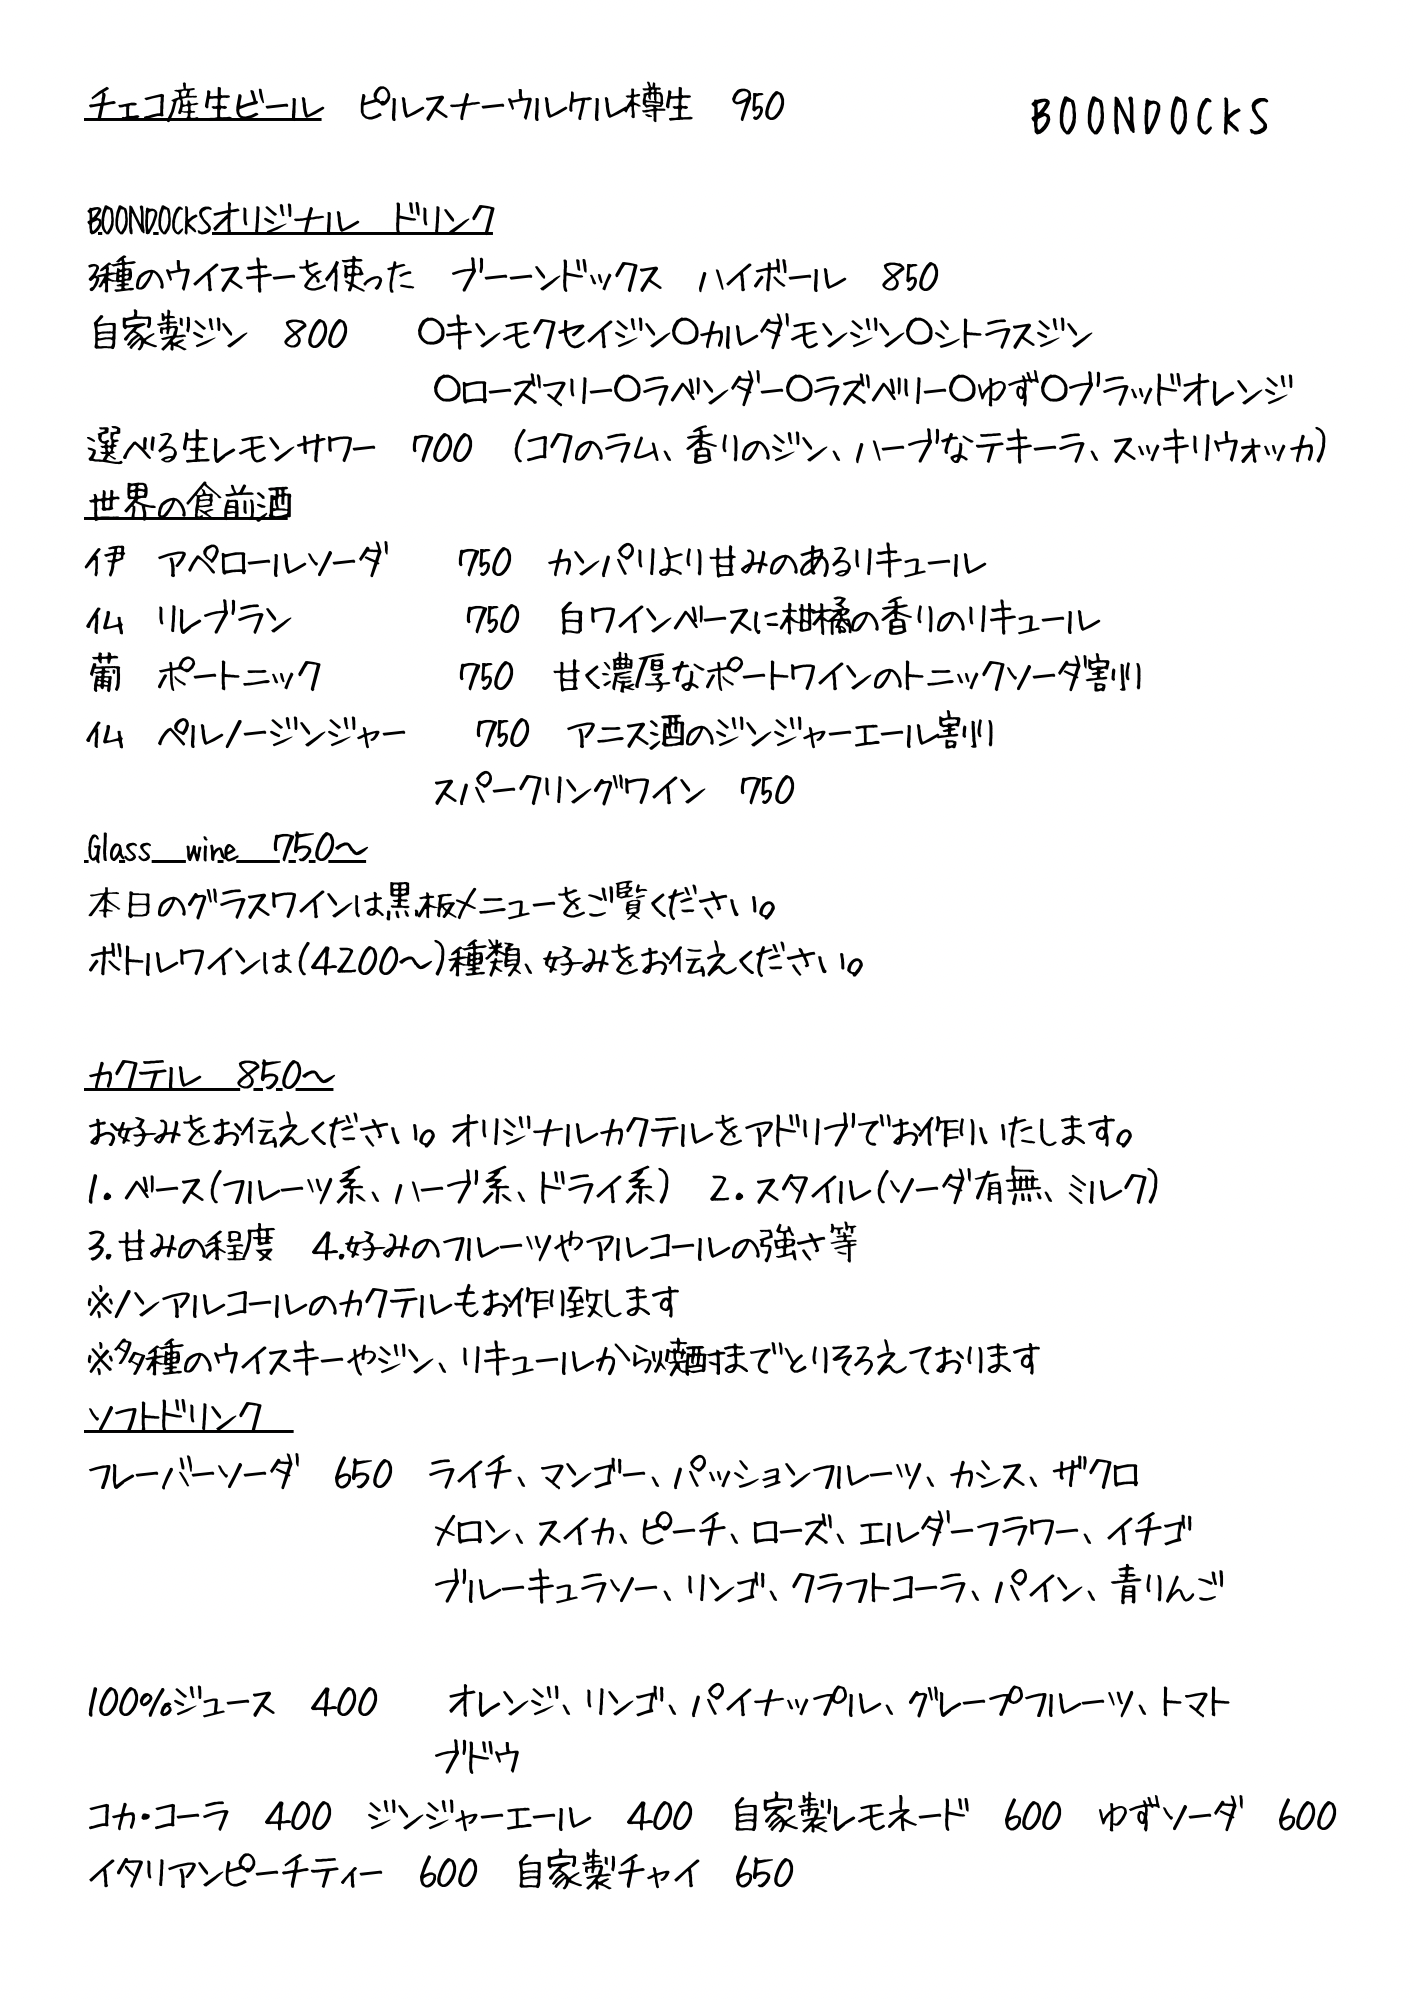 チェコ産生ビール　ピルスナーウルケル樽生　950
BOONDOCKS
BOONDOCKSオリジナル　ドリンク
3種のウイスキーを使った　ブーーンドックス　ハイボール　850
自家製ジン　800　　〇キンモクセイジン〇カルダモンジン〇シトラスジン
〇ローズマリー〇ラベンダー〇ラズベリー〇ゆず〇ブラッドオレンジ
選べる生レモンサワー　700　（コクのラム、香りのジン、ハーブなテキーラ、スッキリウォッカ）
世界の食前酒
伊　アペロールソーダ　　750　カンパリより甘みのあるリキュール
仏　リレブラン　　　　　750　白ワインベースに柑橘の香りのリキュール
葡　ポートニック　　　　750　甘く濃厚なポートワインのトニックソーダ割り
仏　ペルノージンジャー　　750　アニス酒のジンジャーエール割り
スパークリングワイン　750
Glass　wine　750～
本日のグラスワインは黒板メニューをご覧ください。
ボトルワインは(4200～)種類、好みをお伝えください。
カクテル　850～
お好みをお伝えください。オリジナルカクテルをアドリブでお作りいたします。
1. ベース(フルーツ系、ハーブ系、ドライ系)　2. スタイル(ソーダ有無、ミルク)
3.甘みの程度　4.好みのフルーツやアルコールの強さ等
※ノンアルコールのカクテルもお作り致します
※多種のウイスキーやジン、リキュールから焼酎までとりそろえております
ソフトドリンク
フレーバーソーダ　650　ライチ、マンゴー、パッションフルーツ、カシス、ザクロ
メロン、スイカ、ピーチ、ローズ、エルダーフラワー、イチゴ
ブルーキュラソー、リンゴ、クラフトコーラ、パイン、青りんご
100%ジュース　400　　オレンジ、リンゴ、パイナップル、グレープフルーツ、トマト
ブドウ
コカ・コーラ　400　ジンジャーエール　400　自家製レモネード　600　ゆずソーダ　600
イタリアンピーチティー　600　自家製チャイ　650